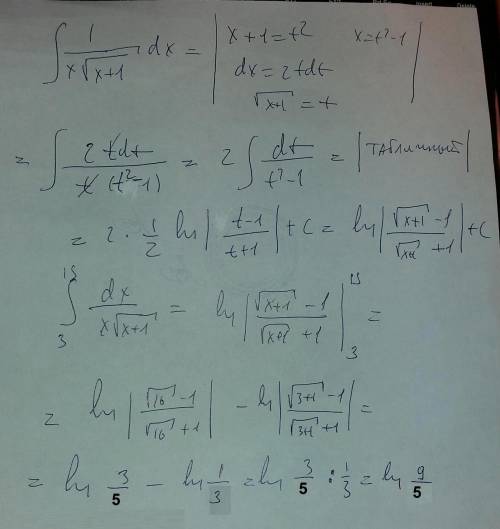 ∫ 1/(x√(x+1)) dx = | x+1=t² x=t²-1
dx=2tdt
√(x+1) = t |
= ∫ 2tdt/(t(t²-1)) = 2∫ dt/(t²-1) = |ТАбличный|
= 2 · 1/2 ln|(t-1)/(t+1)| + C = ln|(√(x+1) -1)/(√(x+1) +1)| + C
∫₃¹⁵ dx/(x√(x+1)) = ln|(√(x+1) -1)/(√(x+1) +1)| |₃¹⁵ =
= ln|(√16 -1)/(√16 +1)| - ln|(√(3+1) -1)/(√(3+1) +1)| =
= ln 3/5 - ln 1/3 = ln 3/5 : 1/3 = ln 9/5